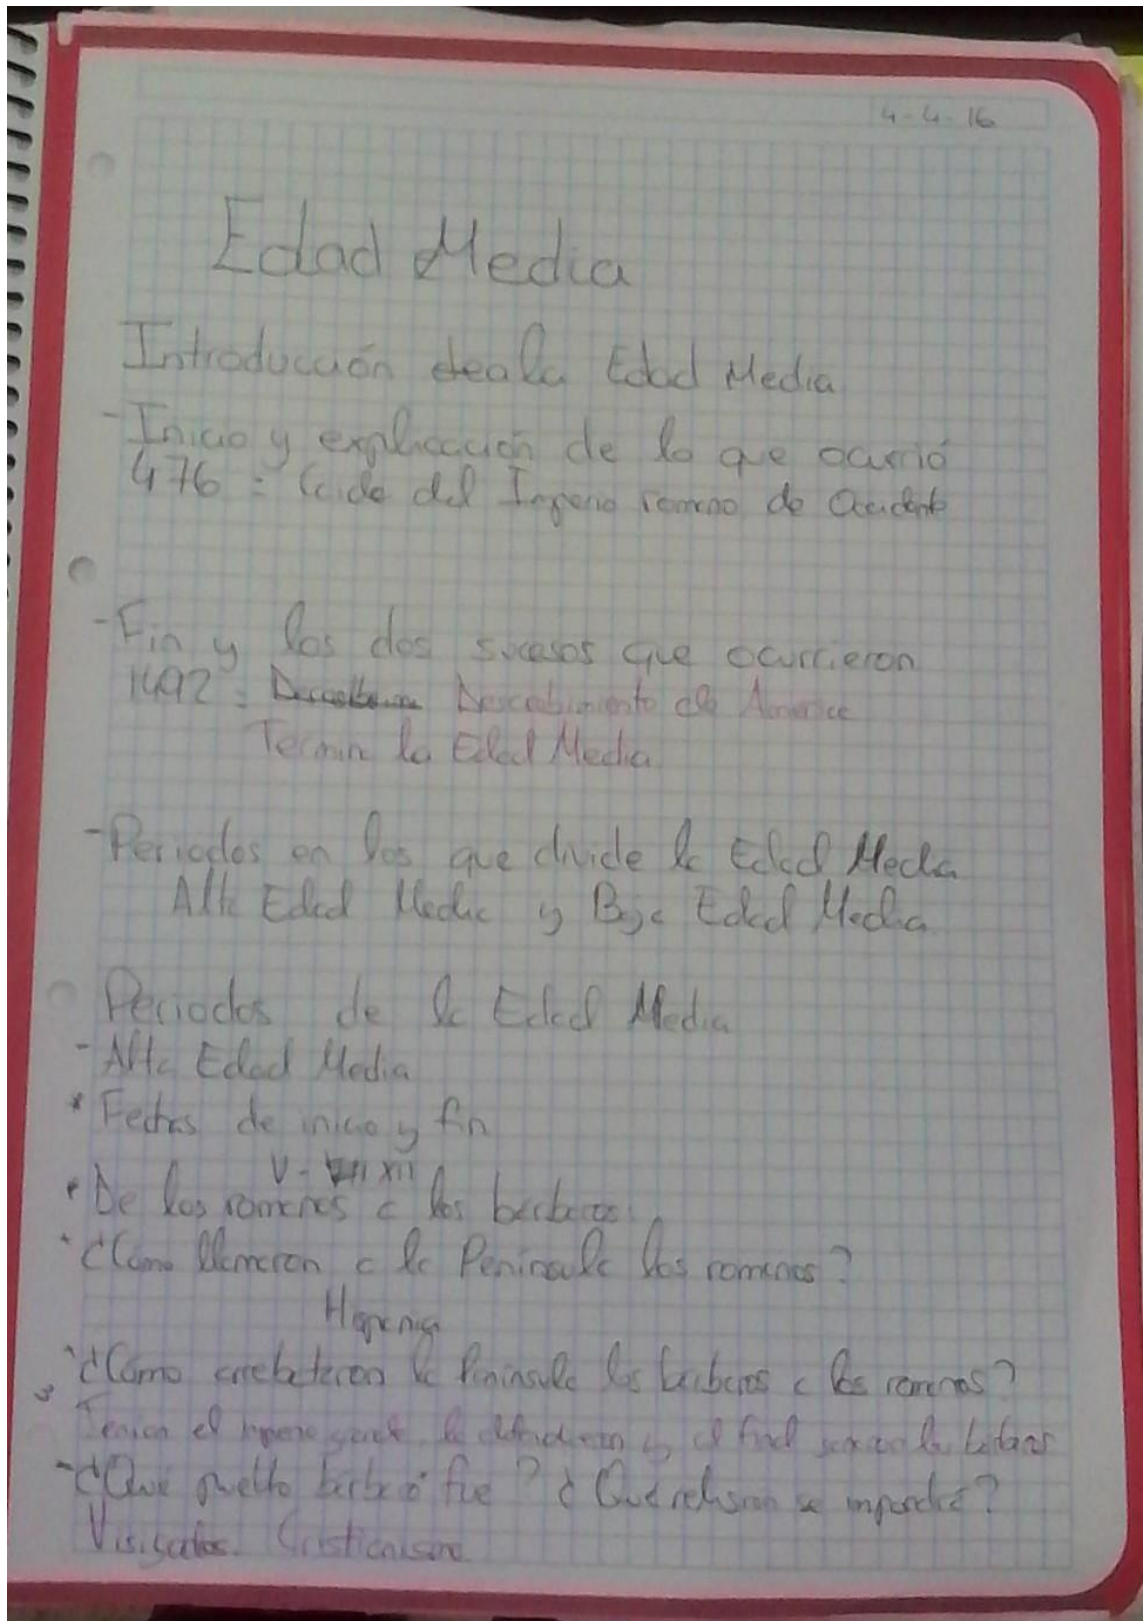 4-4-16
Edad Media
Introducción dea la Edad Media
-Inicio y explicación de lo que ocurrió
476 = Caida del Imperio romano de Occidente
-Fin y los dos sucesos que ocurrieron
1492 = Descubrimiento de America
Termin la Edad Media
-Periodos en los que divide la Edad Media
Alta Edad Media y Baja Edad Media
Periodos de la Edad Media
-Alta Edad Media
* Fechas de inicio y fin
V - XII
* De los romanos a los barbaros
* ¿Como llamaron a la Peninsula los romanos?
Hispania
* ¿Cómo arrebataron la Peninsula los barbaros a los romanos?
Tenian el imperio y al final
-¿Qué pueblo barbaro fue? ¿Qué religion se impondrá?
Visigodos. Cristianismo